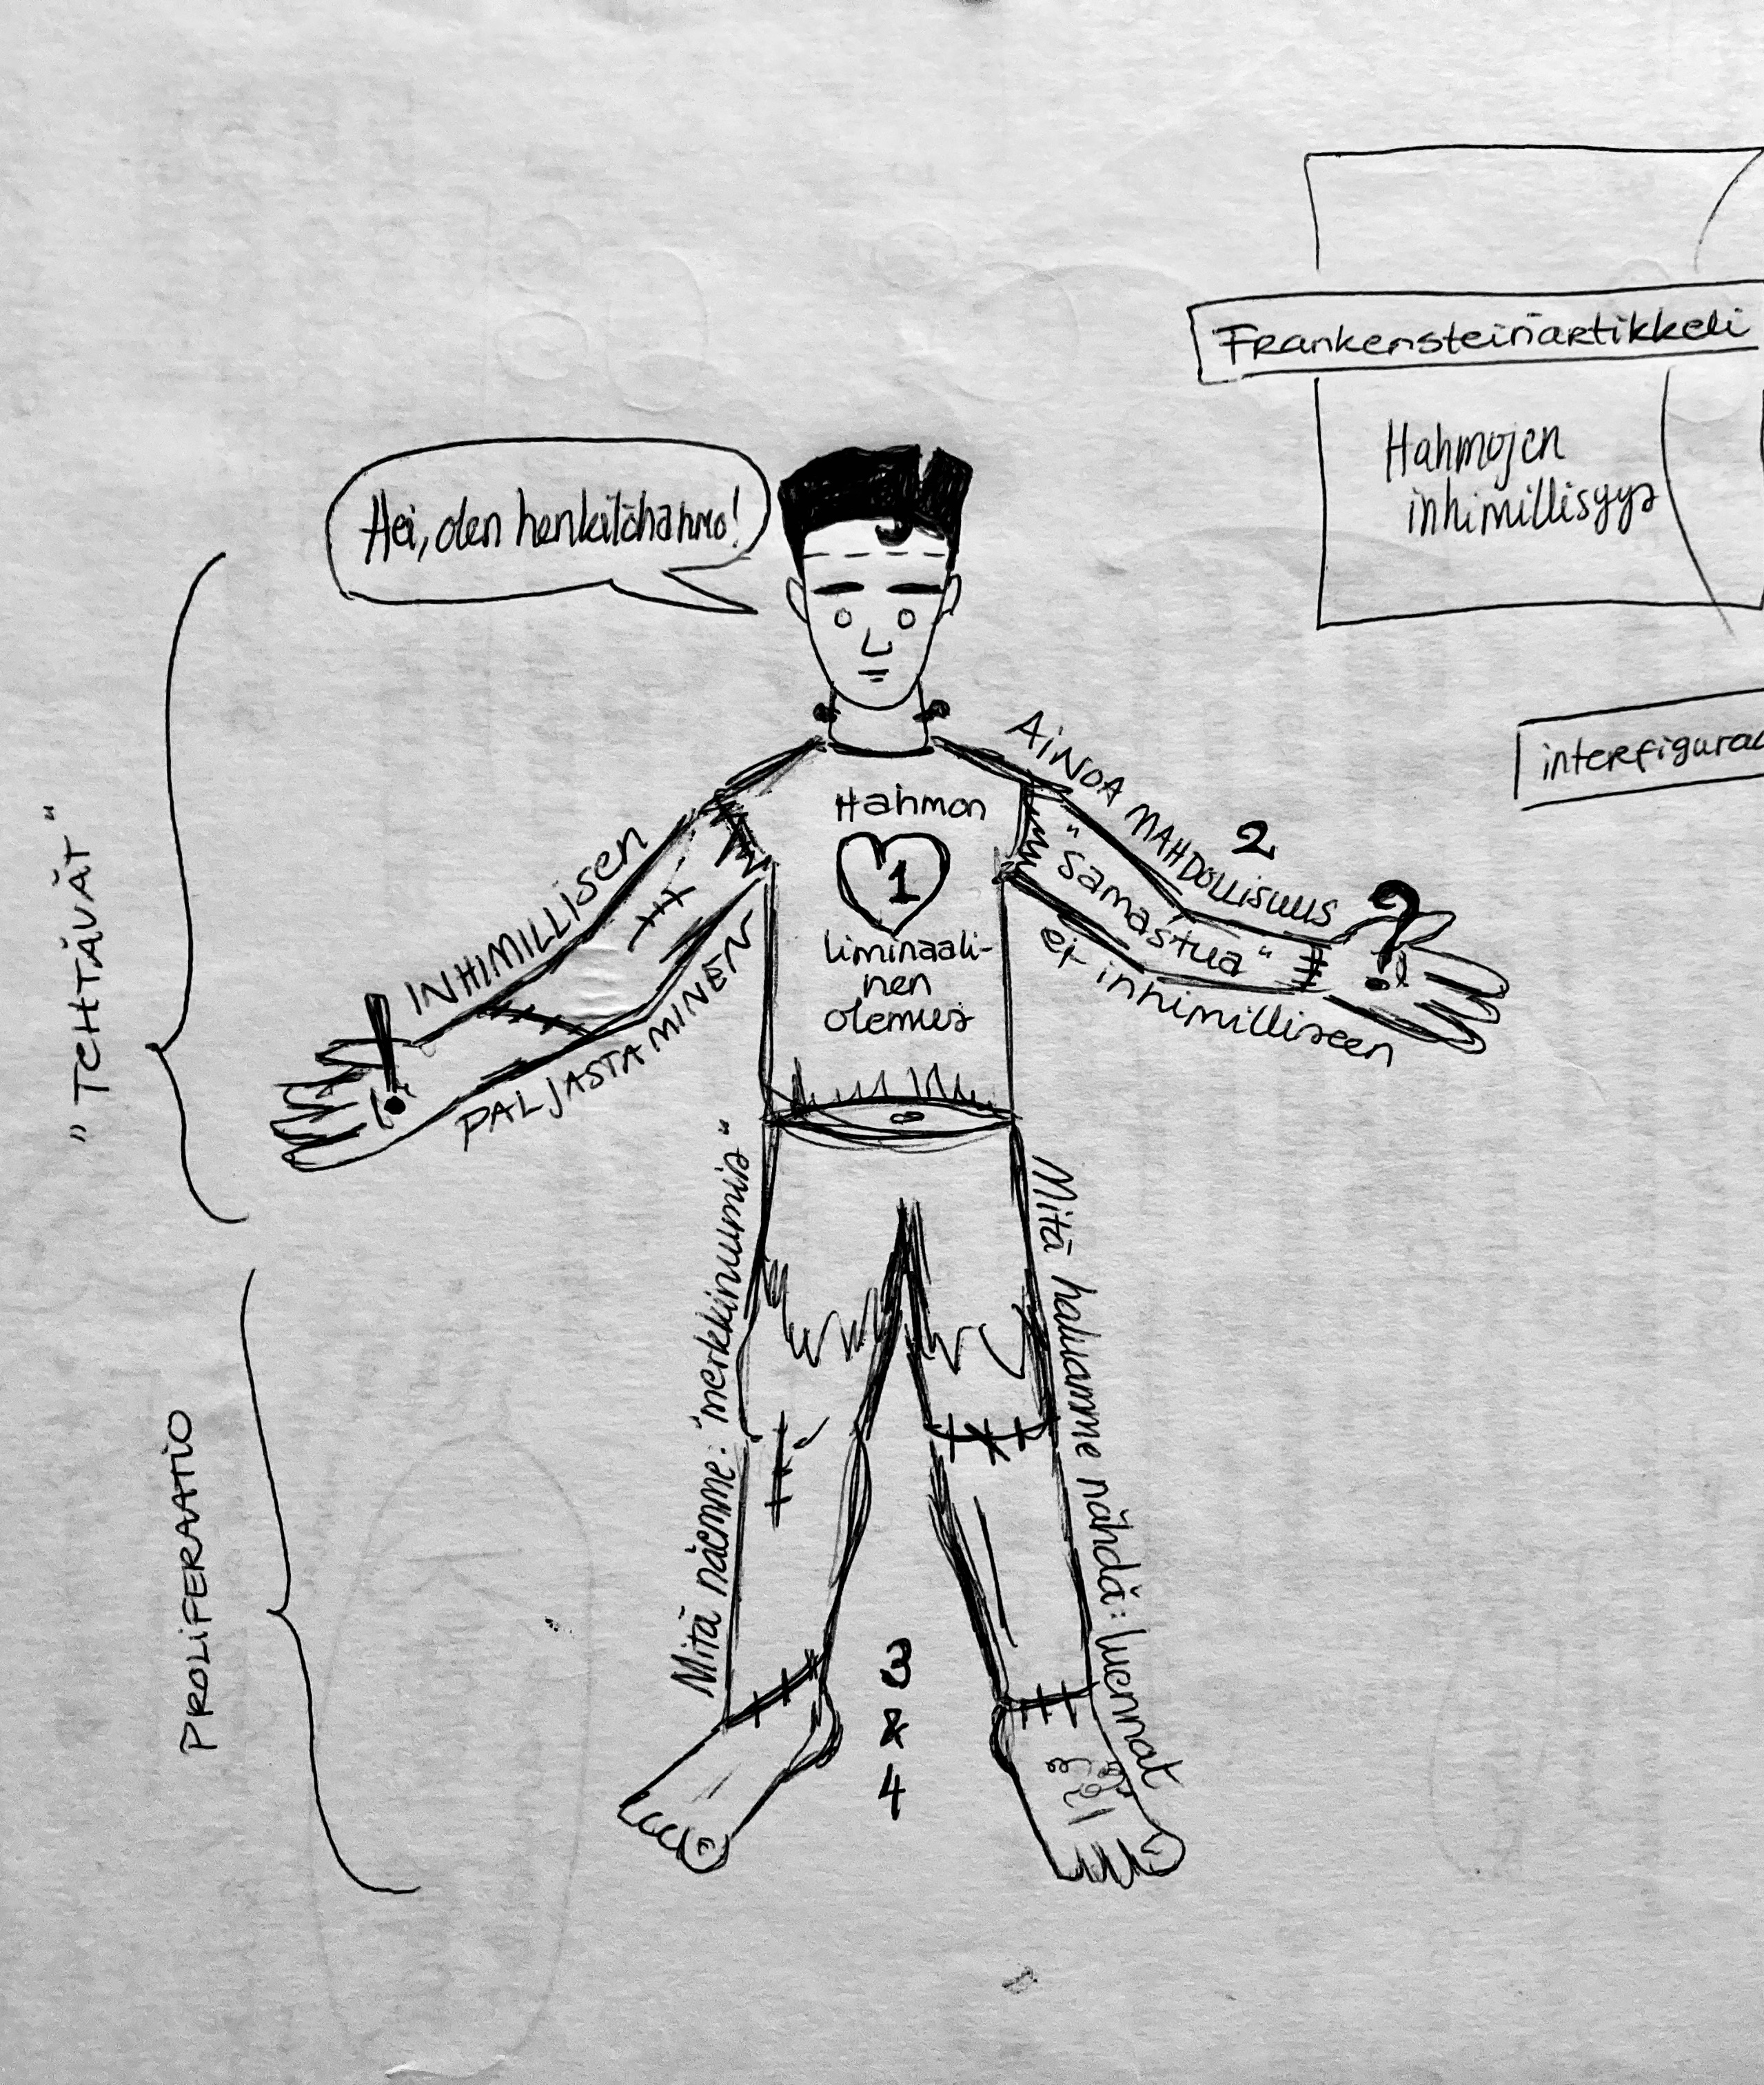 Frankensteinartikkeli
Hahmojen
inhimillisyys
Hei, olen henkilöhahmo!
"TEHTÄVÄT"
INHIMILLISEN
PALJASTAMINEN
!
Hahmon
1
liminaali-
nen
olemus
AINOA MAHDOLLISUUS
2
"samastua"
ei inhimilliseen
?
interfiguraa
PROLIFERAATIO
Mitä näemme: "merkkiruumis"
Mitä haluamme nähdä: luennat
3
&
4